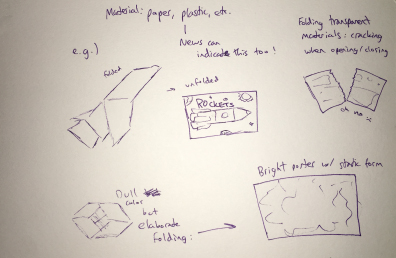 Material: paper, plastic, etc.
News can
indicate this too!
e.g.)
folded
unfolded
ROCKETS
Folding transparent
materials: cracking
when opening/closing
oh no
Dull
color
but
elaborate
folding:
Bright poster w/ static form